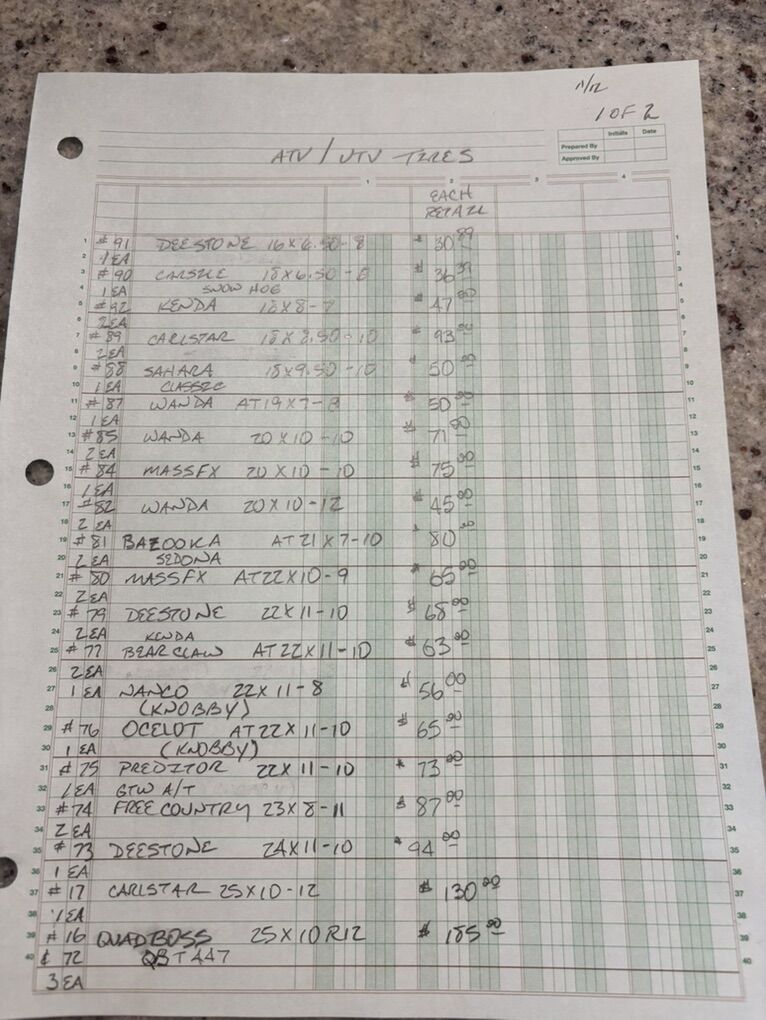 1 OF 2
Initials Date
Prepared By
Approved By
ATV / UTV TIRES
1 2 3 4
EACH
RETAIL
1 #91 DEESTONE 16X6.50-8 $30 89 1
2 1 EA 2
3 #90 CARSLE 18X6.50-8 $36 39 3
4 1 EA SNOW HOG 4
5 #92 KENDA 18X8-7 $47 5
6 2 EA 6
7 #89 CARLSTAR 18X8.50-10 $93 7
8 2 EA 8
9 #88 SAHARA 18X9.50-10 $50 9
10 1 EA CLASSIC 10
11 #87 WANDA AT19X7-8 $50 11
12 1 EA 12
13 #85 WANDA 20X10-10 $71 13
14 2 EA 14
15 #84 MASSFX 20X10-10 $75 00 15
16 1 EA 16
17 #82 WANDA 20X10-12 $45 00 17
18 2 EA 18
19 #81 BAZOOKA AT21X7-10 $80 19
20 2 EA SEDONA 20
21 #80 MASSFX AT22X10-9 $65 00 21
22 2 EA 22
23 #79 DEESTONE 22X11-10 $68 00 23
24 2 EA KENDA 24
25 #77 BEARCLAW AT22X11-10 $63 00 25
26 2 EA 26
27 1 EA NANCO 22X11-8 $56 00 27
28 (KNOBBY) 28
29 #76 OCELOT AT22X11-10 $65 00 29
30 1 EA (KNOBBY) 30
31 #75 PREDITOR 22X11-10 $73 00 31
32 1 EA GTW A/T 32
33 #74 FREE COUNTRY 23X8-11 $87 00 33
34 2 EA 34
35 #73 DEESTONE 24X11-10 $94 00 35
36 1 EA 36
37 #17 CARLSTAR 25X10-12 $130 00 37
38 1 EA 38
39 #16 QUADBOSS 25X10R12 $185 00 39
40 & 72 QBT447 40
3 EA